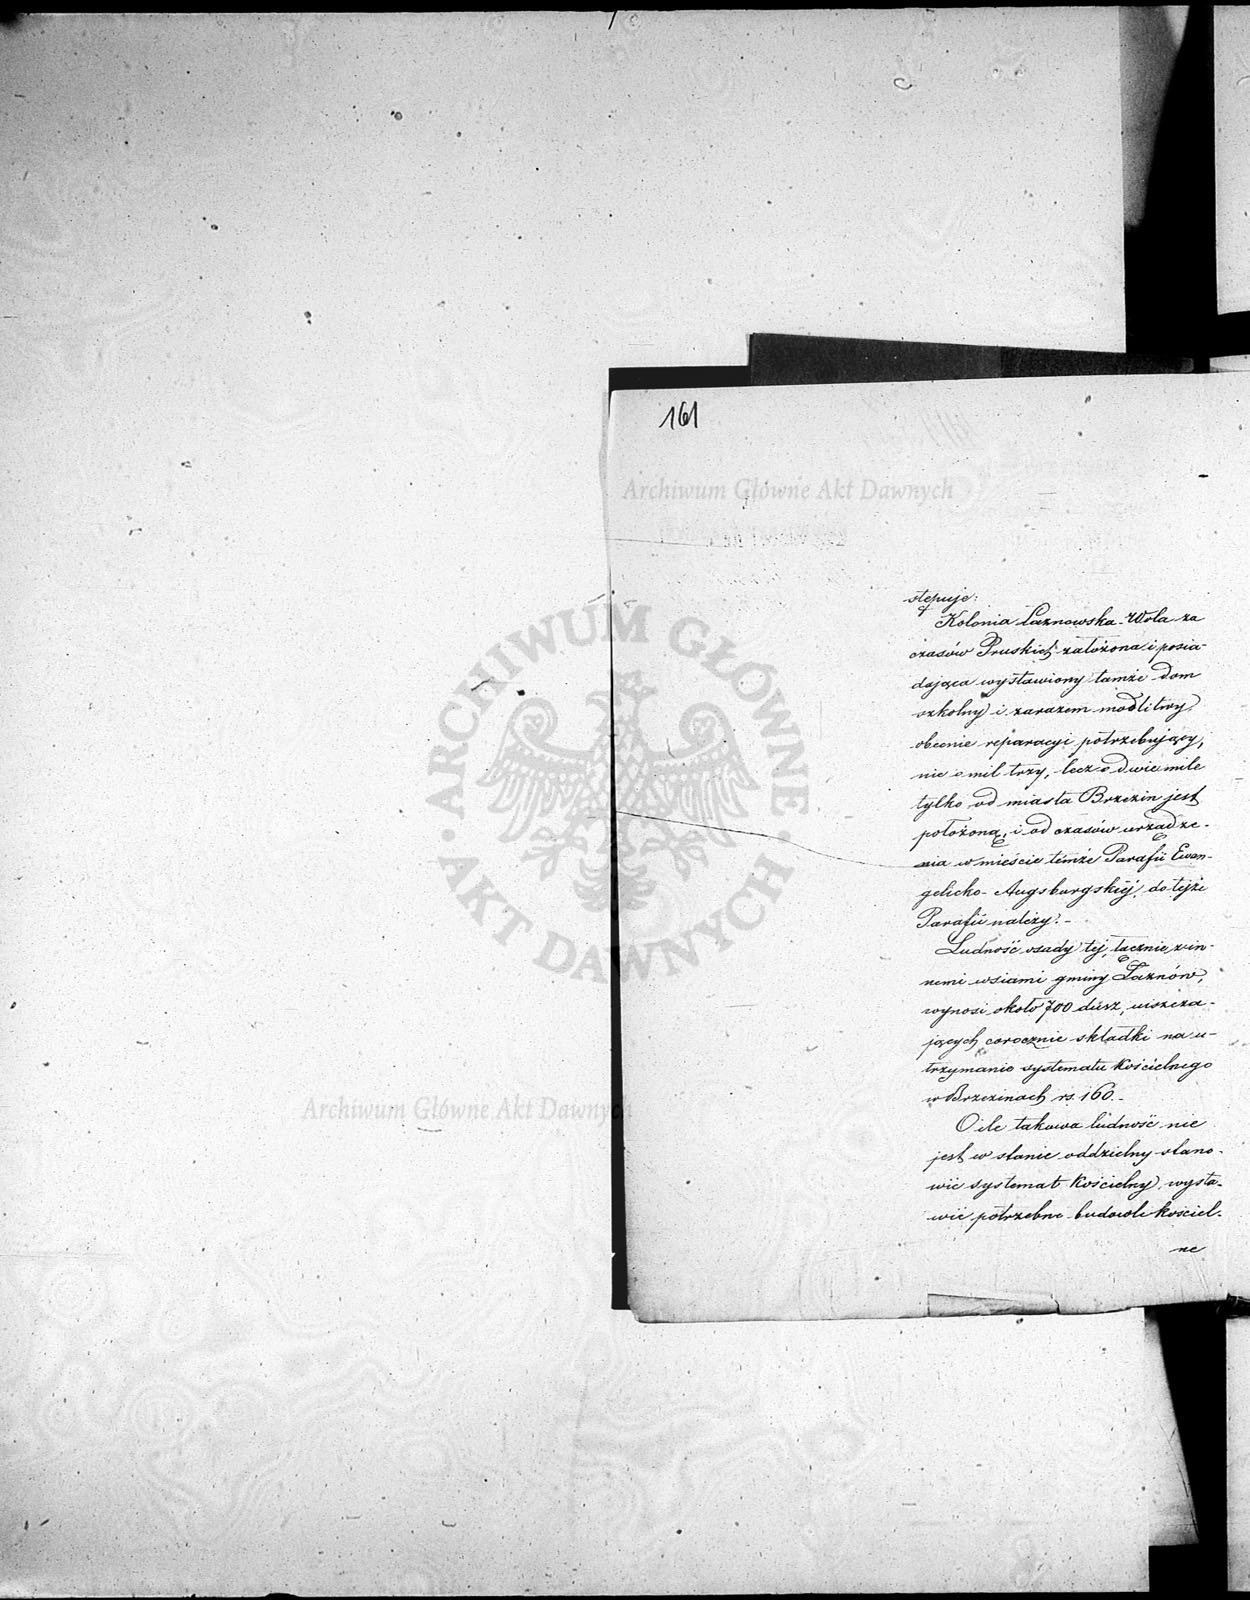 161
Archiwum Główne Akt Dawnych
stępuje:
Kolonia Łaznowska-Wola za
czasów Pruskich założona i posia-
dająca wystawiony tamże dom
szkolny i zarazem modlitwy,
obecnie reparacyi potrzebujący,
nie o mil trzy, lecz o dwie mile
tylko od miasta Brzezin jest
położoną, i od czasów urządze-
nia w mieście témże Parafii Ewan-
gelicko-Augsburgskiéj, do tejże
Parafii należy.-
Ludność osady tej, łącznie z in-
nemi wsiami gminy Łaznów,
wynosi około 700 dusz, uiszcza-
jących corocznie składki na u-
trzymanie systematu kościelnego
w Brzezinach rs. 160.-
O ile takowa ludność nie
jest w stanie oddzielny stano-
wić systemat kościelny, wysta-
wić potrzebne budowle kościel-
ne
ARCHIWUM GŁÓWNE
AKT DAWNYCH
Archiwum Główne Akt Dawnych